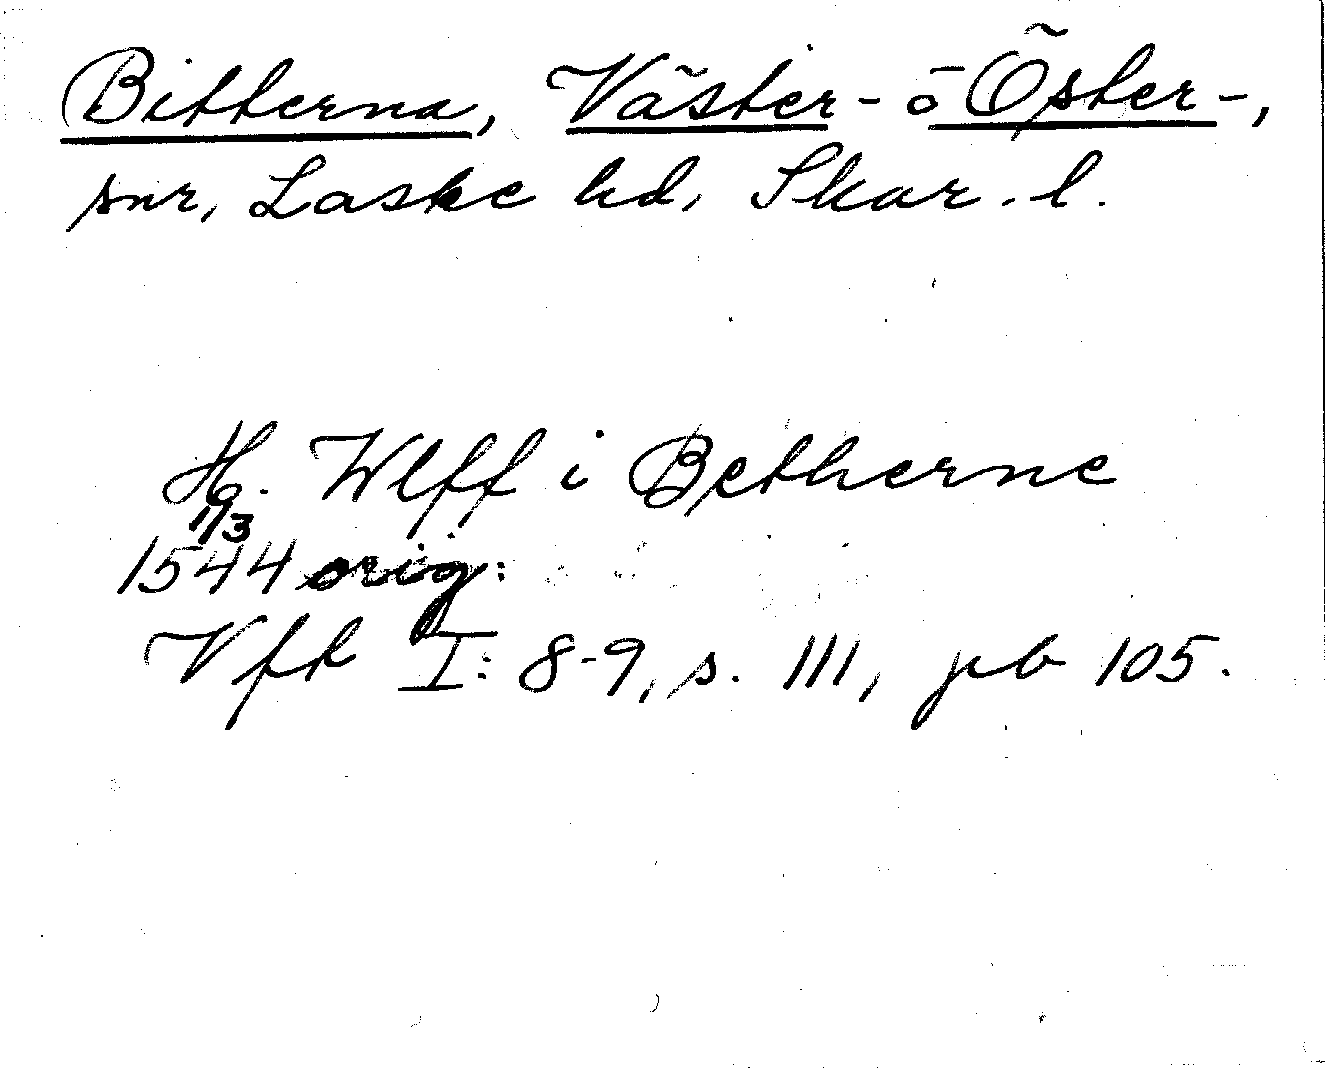 Bitterna, Väster- o Öster-,
snr, Laske hd, Skar. l.
Hg. Wlff i Betherne
11/3
1544 orig.
Vfk I: 8-9, s. 111, pb 105.